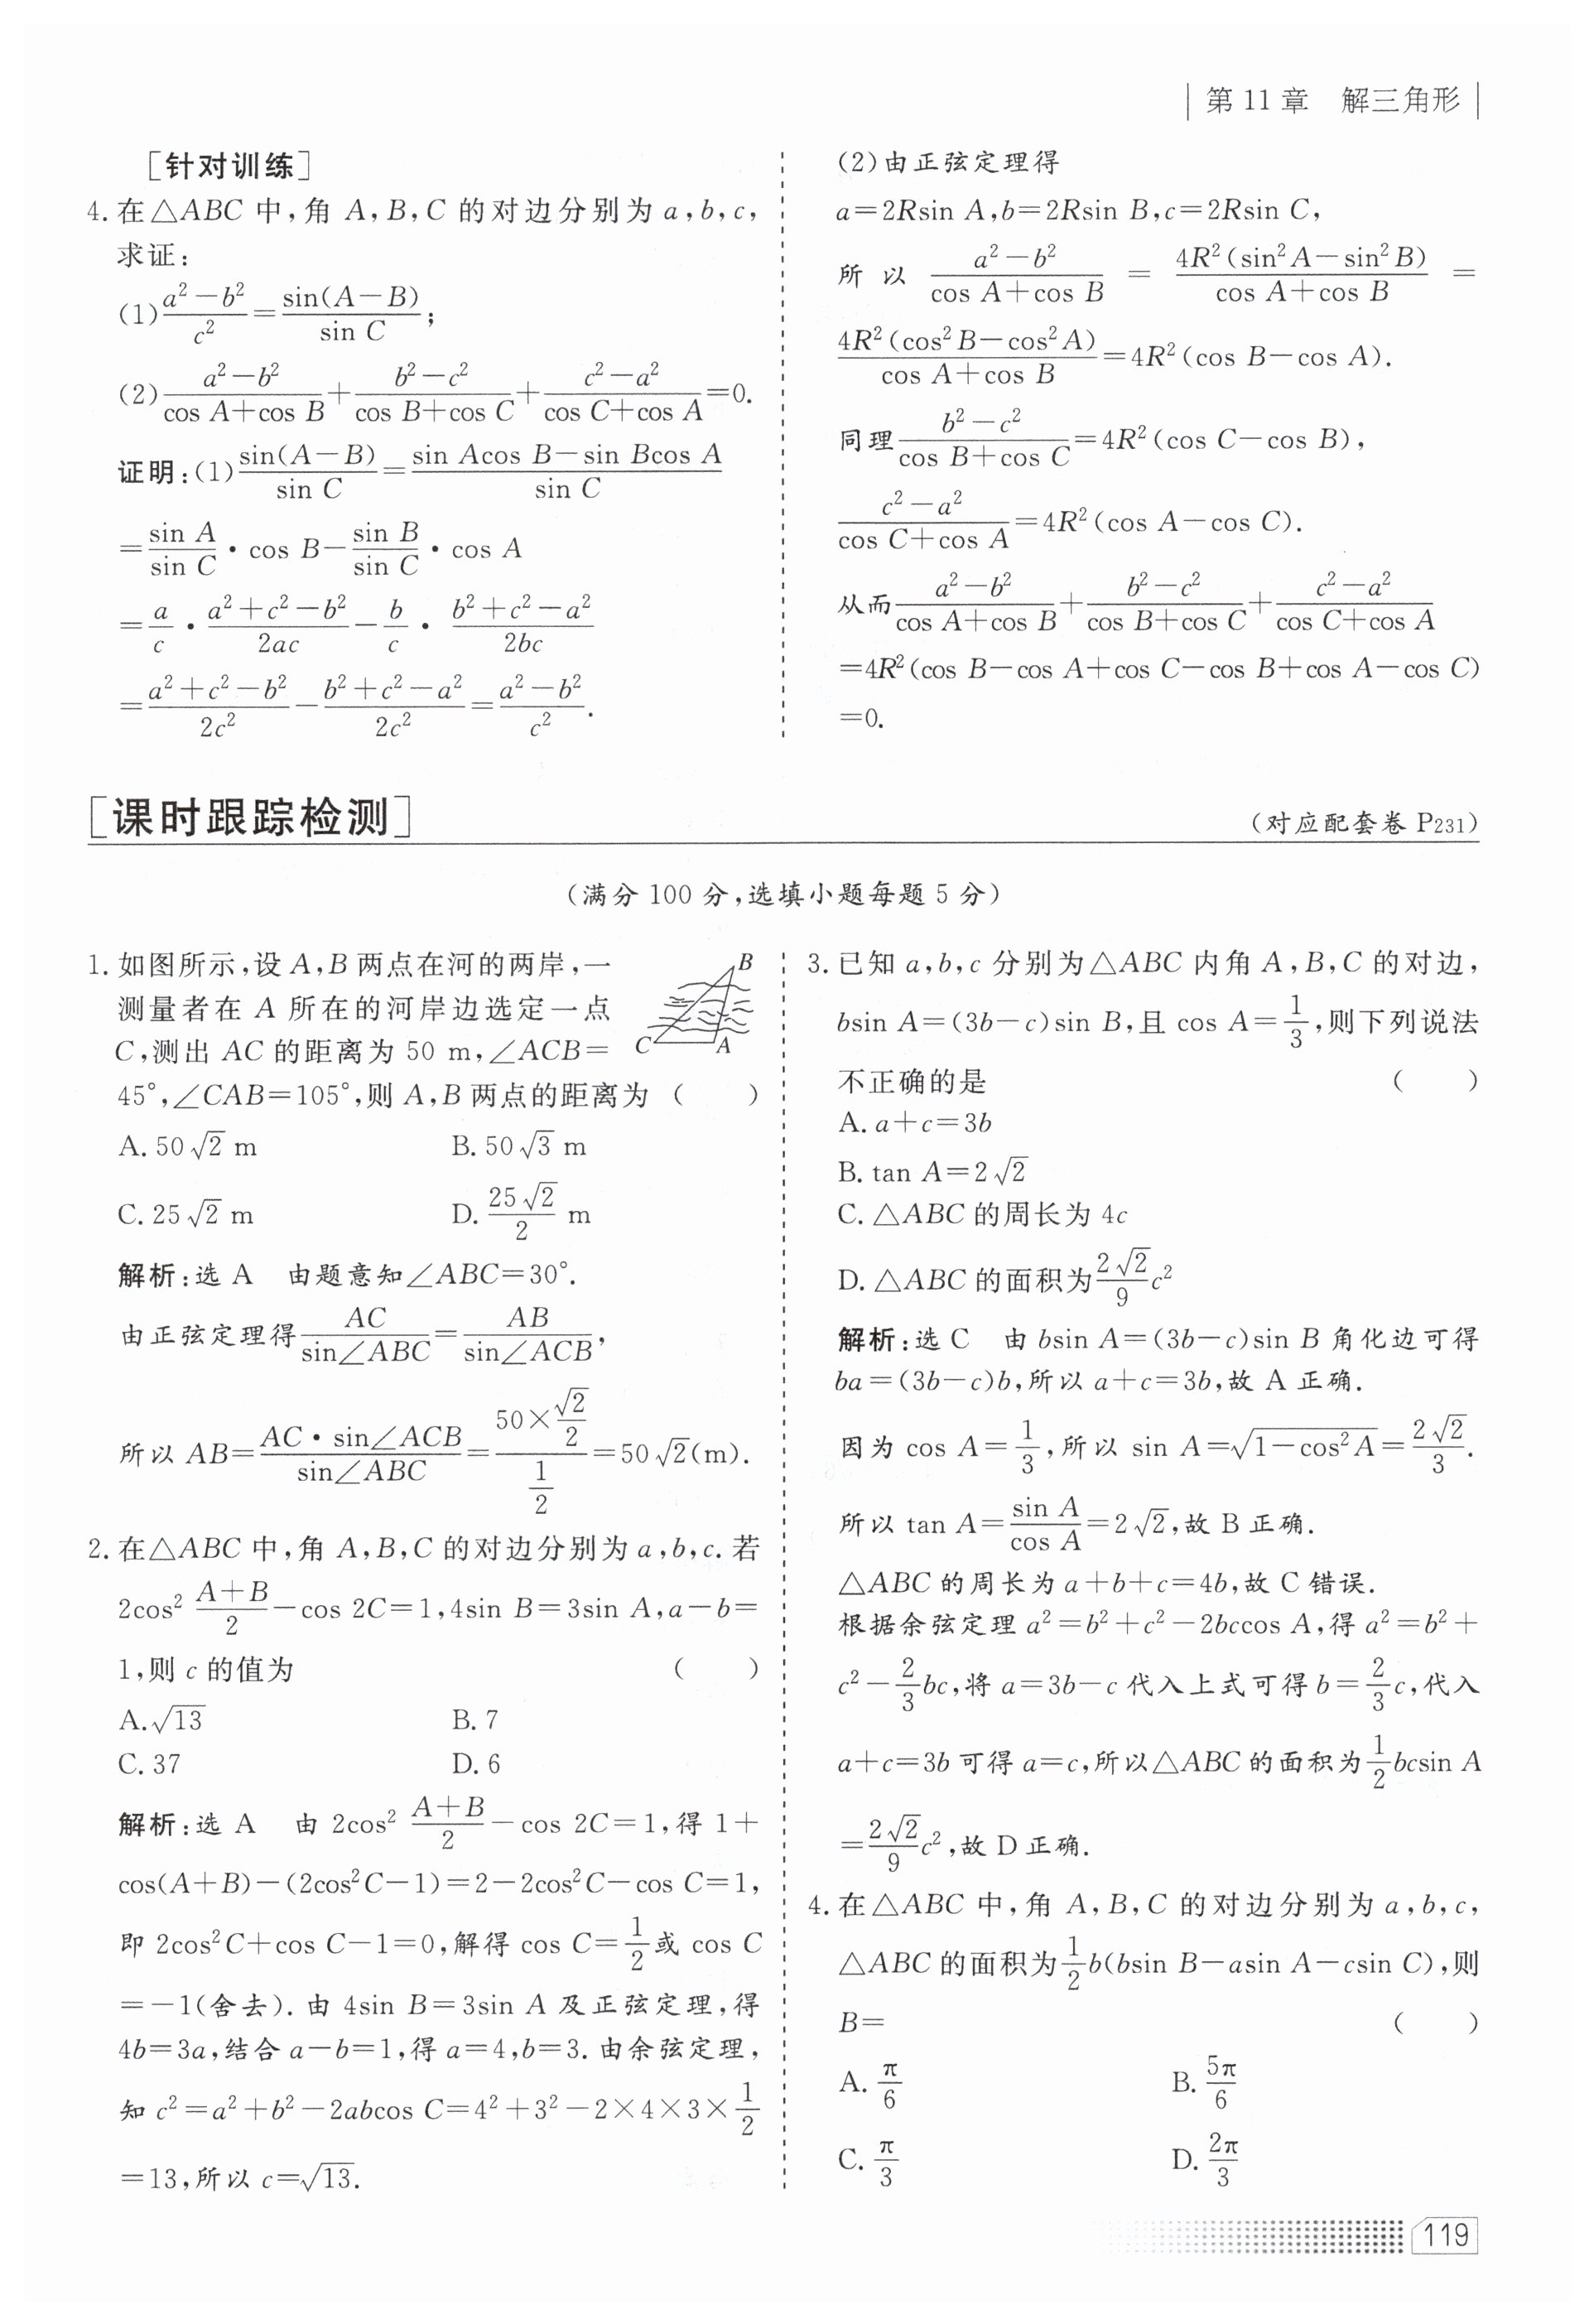 第11章　解三角形
[针对训练]
4. 在△ABC 中,角 A,B,C 的对边分别为 a,b,c,
求证:
(1) $\frac{a^2-b^2}{c^2}=\frac{\sin(A-B)}{\sin C}$;
(2) $\frac{a^2-b^2}{\cos A+\cos B}+\frac{b^2-c^2}{\cos B+\cos C}+\frac{c^2-a^2}{\cos C+\cos A}=0$.
证明:(1) $\frac{\sin(A-B)}{\sin C}=\frac{\sin A\cos B-\sin B\cos A}{\sin C}$
$=\frac{\sin A}{\sin C}\cdot\cos B-\frac{\sin B}{\sin C}\cdot\cos A$
$=\frac{a}{c}\cdot\frac{a^2+c^2-b^2}{2ac}-\frac{b}{c}\cdot\frac{b^2+c^2-a^2}{2bc}$
$=\frac{a^2+c^2-b^2}{2c^2}-\frac{b^2+c^2-a^2}{2c^2}=\frac{a^2-b^2}{c^2}$.
(2)由正弦定理得
a=2Rsin A,b=2Rsin B,c=2Rsin C,
所以 $\frac{a^2-b^2}{\cos A+\cos B}=\frac{4R^2(\sin^2A-\sin^2B)}{\cos A+\cos B}=$
$\frac{4R^2(\cos^2B-\cos^2A)}{\cos A+\cos B}=4R^2(\cos B-\cos A)$.
同理 $\frac{b^2-c^2}{\cos B+\cos C}=4R^2(\cos C-\cos B)$,
$\frac{c^2-a^2}{\cos C+\cos A}=4R^2(\cos A-\cos C)$.
从而 $\frac{a^2-b^2}{\cos A+\cos B}+\frac{b^2-c^2}{\cos B+\cos C}+\frac{c^2-a^2}{\cos C+\cos A}$
$=4R^2(\cos B-\cos A+\cos C-\cos B+\cos A-\cos C)$
=0.
[课时跟踪检测]
(对应配套卷 P231)
(满分 100 分,选填小题每题 5 分)
1. 如图所示,设 A,B 两点在河的两岸,一
测量者在 A 所在的河岸边选定一点
C,测出 AC 的距离为 50 m,∠ACB=
45°,∠CAB=105°,则 A,B 两点的距离为 (　　)
B
C
A
A. $50\sqrt{2}$ m　　B. $50\sqrt{3}$ m
C. $25\sqrt{2}$ m　　D. $\frac{25\sqrt{2}}{2}$ m
解析:选 A　由题意知∠ABC=30°.
由正弦定理得 $\frac{AC}{\sin\angle ABC}=\frac{AB}{\sin\angle ACB}$,
所以 $AB=\frac{AC\cdot\sin\angle ACB}{\sin\angle ABC}=\frac{50\times\frac{\sqrt{2}}{2}}{\frac{1}{2}}=50\sqrt{2}$(m).
2. 在△ABC 中,角 A,B,C 的对边分别为 a,b,c. 若
$2\cos^2\frac{A+B}{2}-\cos 2C=1$,4sin B=3sin A,a-b=
1,则 c 的值为 (　　)
A. $\sqrt{13}$　　B. 7
C. 37　　D. 6
解析:选 A　由 $2\cos^2\frac{A+B}{2}-\cos 2C=1$,得 1+
$\cos(A+B)-(2\cos^2C-1)=2-2\cos^2C-\cos C=1$,
即 $2\cos^2C+\cos C-1=0$,解得 $\cos C=\frac{1}{2}$ 或 cos C
=-1(舍去). 由 4sin B=3sin A 及正弦定理,得
4b=3a,结合 a-b=1,得 a=4,b=3. 由余弦定理,
知 $c^2=a^2+b^2-2ab\cos C=4^2+3^2-2\times4\times3\times\frac{1}{2}$
=13,所以 $c=\sqrt{13}$.
3. 已知 a,b,c 分别为△ABC 内角 A,B,C 的对边,
bsin A=(3b-c)sin B,且 $\cos A=\frac{1}{3}$,则下列说法
不正确的是 (　　)
A. a+c=3b
B. $\tan A=2\sqrt{2}$
C. △ABC 的周长为 4c
D. △ABC 的面积为 $\frac{2\sqrt{2}}{9}c^2$
解析:选 C　由 bsin A=(3b-c)sin B 角化边可得
ba=(3b-c)b,所以 a+c=3b,故 A 正确.
因为 $\cos A=\frac{1}{3}$,所以 $\sin A=\sqrt{1-\cos^2A}=\frac{2\sqrt{2}}{3}$.
所以 $\tan A=\frac{\sin A}{\cos A}=2\sqrt{2}$,故 B 正确.
△ABC 的周长为 a+b+c=4b,故 C 错误.
根据余弦定理 $a^2=b^2+c^2-2bc\cos A$,得 $a^2=b^2+$
$c^2-\frac{2}{3}bc$,将 a=3b-c 代入上式可得 $b=\frac{2}{3}c$,代入
a+c=3b 可得 a=c,所以△ABC 的面积为 $\frac{1}{2}bc\sin A$
$=\frac{2\sqrt{2}}{9}c^2$,故 D 正确.
4. 在△ABC 中,角 A,B,C 的对边分别为 a,b,c,
△ABC 的面积为 $\frac{1}{2}b(b\sin B-a\sin A-c\sin C)$,则
B= (　　)
A. $\frac{π}{6}$　　B. $\frac{5π}{6}$
C. $\frac{π}{3}$　　D. $\frac{2π}{3}$
119